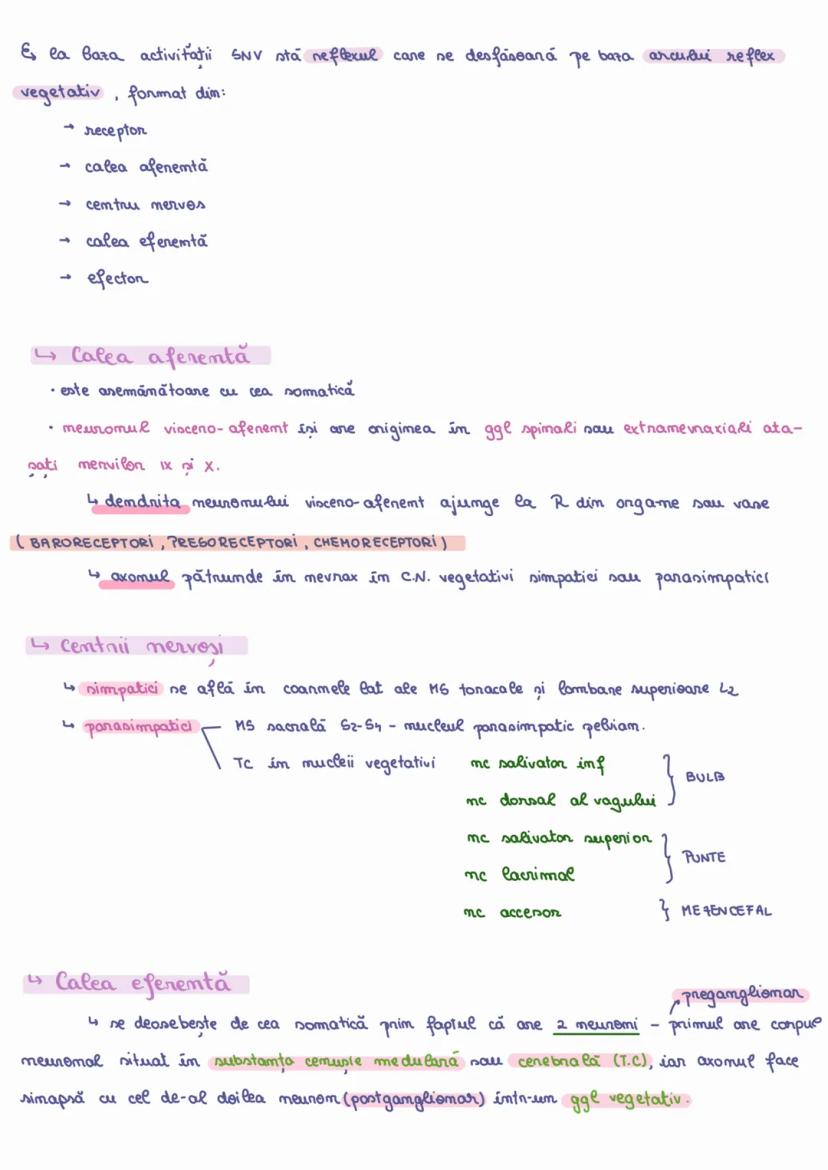 ↳ la baza activității SNV stă reflexul care se desfășoară pe baza arcului reflex
vegetativ, format din:
→ receptor
→ calea aferentă
→ centru nervos
→ calea eferentă
→ efector
↳ Calea aferentă
• este asemănătoare cu cea somatică
• neuronul viscero-aferent își are originea în ggl spinali sau extranevraxiali ata-
șați nervilor IX și X.
↳ dendrita neuronului viscero-aferent ajunge la R din organe sau vase
(BARORECEPTORI, PRESORECEPTORI, CHEMORECEPTORI)
↳ axonul pătrunde în nevrax în C.N. vegetativi simpatici sau parasimpatici
↳ Centrii nervoși
↳ simpatici se află în coarnele lat ale MS toracale și lombare superioare L2
↳ parasimpatici MS sacrală S2-S4 - nucleul parasimpatic pelvian.
TC în nucleii vegetativi nc salivator inf
nc dorsal al vagului } BULB
nc salivator superior
nc lacrimal } PUNTE
nc accesor } MEZENCEFAL
↳ Calea eferentă
preganglionar
↳ se deosebește de cea somatică prin faptul că are 2 neuroni - primul are corpul
neuronal situat în substanța cenușie medulară sau cerebrală (T.C), iar axonul face
sinapsă cu cel de-al doilea neuron (postganglionar) într-un ggl vegetativ.